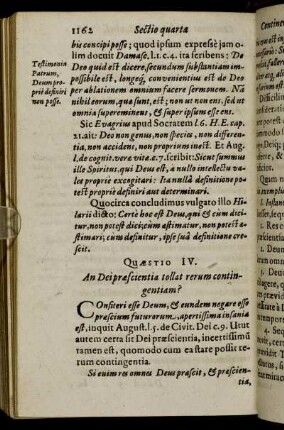 1162 Sectio quarta
his concipi posse; quod ipsum expresse jam o-
lim docuit Damasc. l. 1. c. 4. ita scribens: De
Testimonia
Patrum,
Deum pro-
prie definiri
non posse.
Deo quid est dicere, secundum substantiam im-
possibile est, longeq́, convenientius est de Deo
per ablationem omnium facere sermonem. Na
nihil eorum, quæ sunt, est; non ut non ens, sed ut
omnia supereminens, & super ipsum esse ens.
Sic Evagrius apud Socratem l. 6. H. E. cap.
21. ait: Deo non genus, non species, non differen-
tia, non accidens, non proprium inest. Et Aug.
l. de cognit. veræ vitæ c. 7. scribit: Sicut summus
ille Spiritus, qui Deus est, à nullo intellectu va-
let propriè excogitari: Ita nullâ definitione po-
test propriè definiri aut determinari.
Quocirca concludimus vulgato illo Hi-
larii dicto: Certè hoc est Deus, qui & cùm dici-
tur, non potest dici; cùm æstimatur, non potest æ-
stimari; cùm definitur, ipse suâ definitione cre-
scit.
QUÆSTIO IV.
An Dei præscientia tollat rerum contin-
gentiam?
COnfiteri esse Deum, & eundem negare esse
præscium futurorum, apertissima insania
est, inquit August. l. 5. de Civit. Dei c. 9. Ut ut
autem certa sit Dei præscientia, incertissimũ
tamen est, quomodo cum ea stare possit re-
rum contingentia.
Si enim res omnes Deus præscit, & præscien-
tia,